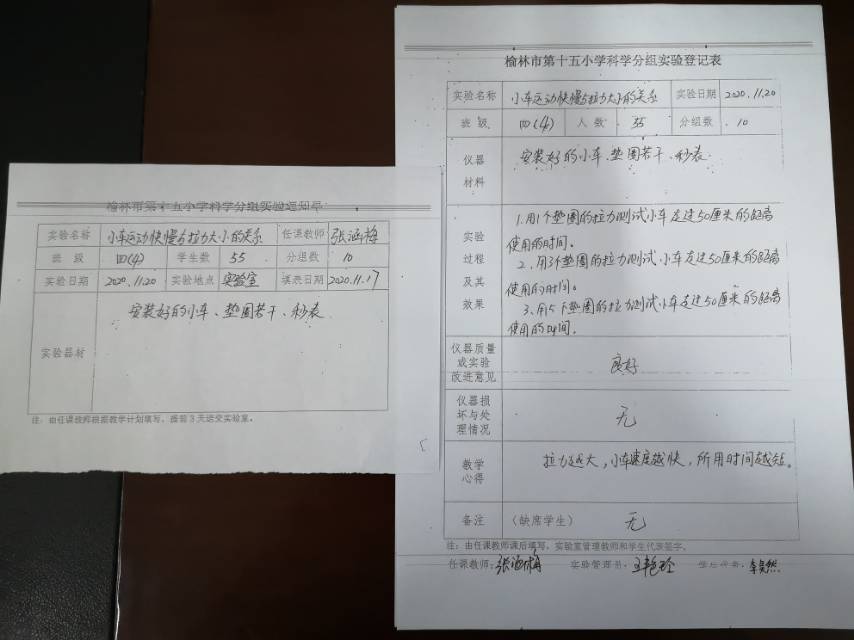 榆林市第十五小学科学分组实验通知单
实验名称 小车运动快慢与拉力大小的关系 任课教师 张涵梅
班 级 四(4) 学生数 55 分组数 10
实验日期 2020.11.20 实验地点 实验室 填表日期 2020.11.17
实验器材 安装好的小车、垫圈若干、秒表
注：由任课教师根据教学计划填写，提前3天送交实验室。
榆林市第十五小学科学分组实验登记表
实验名称 小车运动快慢与拉力大小的关系 实验日期 2020.11.20
班 级 四(4) 人 数 55 分组数 10
仪器 安装好的小车、垫圈若干、秒表
材料
1.用1个垫圈的拉力测试小车走过50厘米的距离
实验 使用的时间。
过程 2.用3个垫圈的拉力测试小车走过50厘米的距离
及其 使用的时间。
效果 3.用5个垫圈的拉力测试小车走过50厘米的距离
使用的时间。
仪器质量
或实验 良好
改进意见
仪器损
坏与处 无
理情况
教学 拉力越大，小车速度越快，所用时间越短。
心得
备注 (缺席学生) 无
注：由任课教师课后填写，实验室管理教师和学生代表签字。
任课教师：张涵梅 实验管理员： 学生代表：